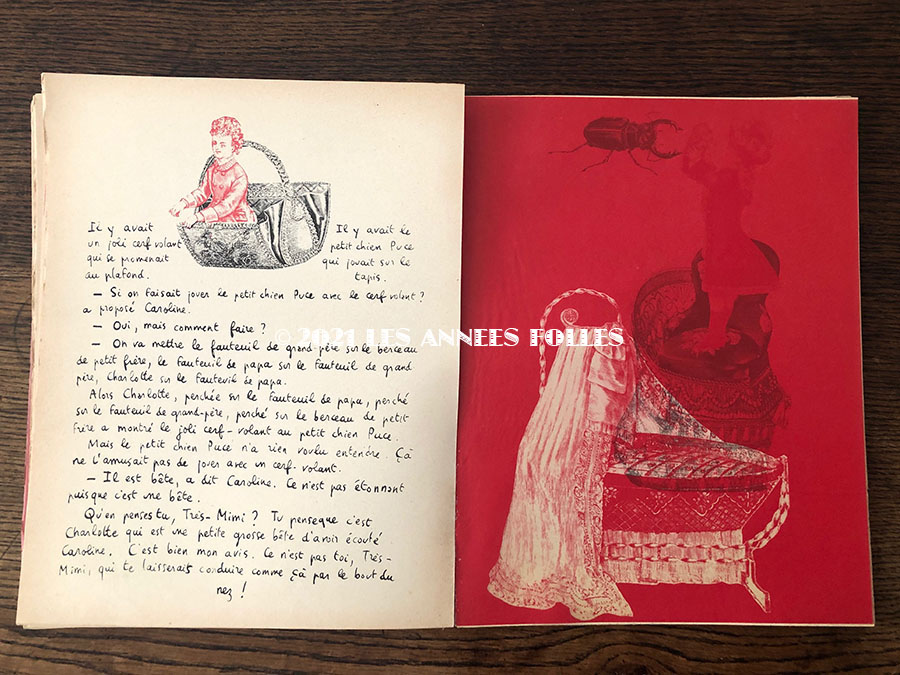 Il y avait
un joli cerf-volant
qui se promenait
au plafond.
Il y avait le
petit chien Puce
qui jouait sur le
tapis.
— Si on faisait jouer le petit chien Puce avec le cerf-volant ?
a proposé Caroline.
— Oui, mais comment faire ?
— On va mettre le fauteuil de grand-père sur le berceau
de petit frère, le fauteuil de papa sur le fauteuil de grand
père, Charlotte sur le fauteuil de papa.
Alors Charlotte, perchée sur le fauteuil de papa, perché
sur le fauteuil de grand-père, perché sur le berceau de petit
frère a montré le joli cerf-volant au petit chien Puce.
Mais le petit chien Puce n'a rien voulu entendre. Çà
ne l'amusait pas de jouer avec un cerf-volant.
— Il est bête, a dit Caroline. Ce n'est pas étonnant
puisque c'est une bête.
Qu'en penses tu, Très-Mimi ? Tu penseque c'est
Charlotte qui est une petite grosse bête d'avoir écouté
Caroline. C'est bien mon avis. Ce n'est pas toi, Très-
Mimi, qui te laisserait conduire comme çà par le bout du
nez !
© 2021 LES ANNEES FOLLES